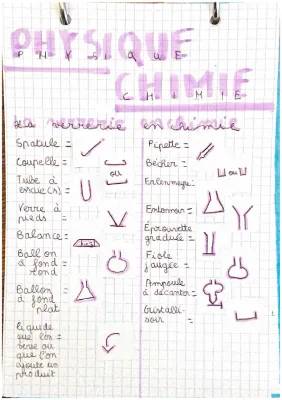 PHYSIQUE
PHYSIQUE
CHIMIE
CHIMIE
La verrerie en chimie
Spatule =
Coupelle =
ou
Tube à
essai(s)
Verre à
pieds =
Balance =
Ballon
à fond =
rond
Ballon
à fond =
plat
Liquide
que l'on =
verse ou
que l'on
ajoute un
produit
Pipette =
Bécher =
ou
Erlenmeyer
Entonnoir =
Éprouvette
graduée =
Fiole
jaugée =
Ampoule
à décanter =
Cristalli-
soir =